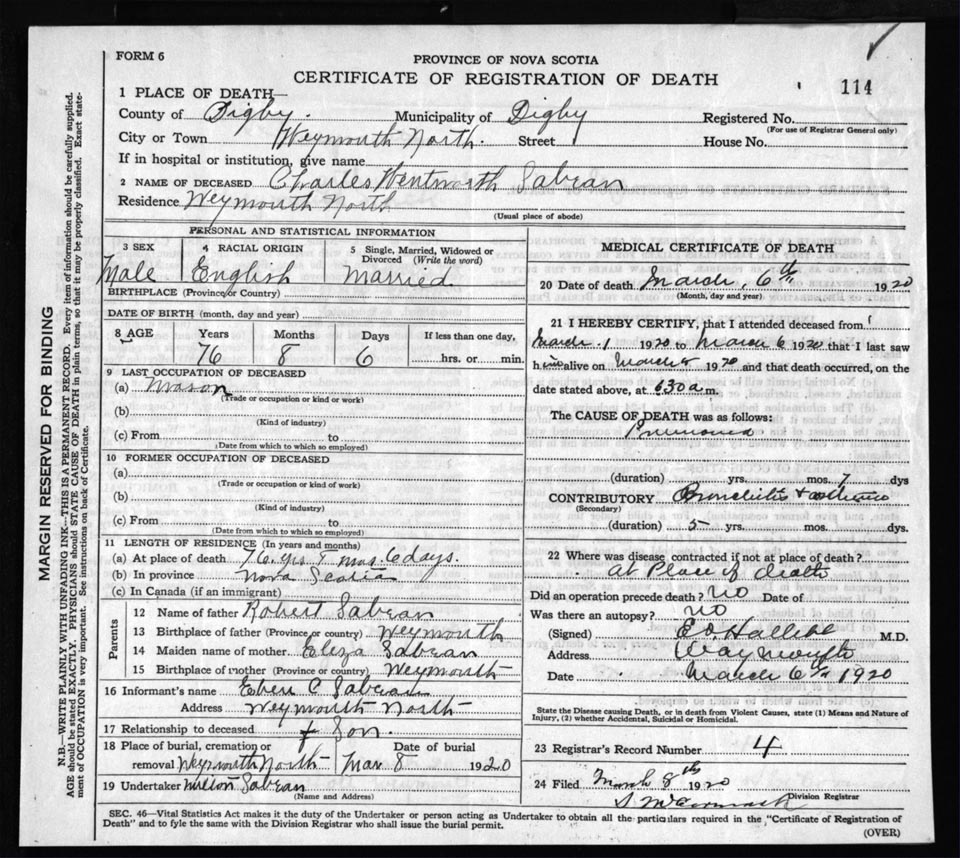 FORM 6
PROVINCE OF NOVA SCOTIA
CERTIFICATE OF REGISTRATION OF DEATH
114
1 PLACE OF DEATH—
County of Digby. Municipality of Digby Registered No.
(For use of Registrar General only)
City or Town Weymouth North. Street House No.
If in hospital or institution, give name
2 NAME OF DECEASED Charles Wentworth Sabean
Residence Weymouth North
(Usual place of abode)
PERSONAL AND STATISTICAL INFORMATION
3 SEX 4 RACIAL ORIGIN 5 Single, Married, Widowed or Divorced (Write the word)
Male English Married
BIRTHPLACE (Province or Country)
DATE OF BIRTH (month, day and year)
8 AGE Years Months Days If less than one day,
76 8 6 hrs. or min.
9 LAST OCCUPATION OF DECEASED
(a) Mason
(Trade or occupation or kind or work)
(b)
(Kind of industry)
(c) From to
(Date from which to which so employed)
10 FORMER OCCUPATION OF DECEASED
(a)
(Trade or occupation or kind of work)
(b)
(Kind of industry)
(c) From to
(Date from which to which so employed)
11 LENGTH OF RESIDENCE (In years and months)
(a) At place of death 76 yrs mos 6 days.
(b) In province Nova Scotia
(c) In Canada (if an immigrant)
Parents
12 Name of father Robert Sabean
13 Birthplace of father (Province or country) Weymouth
14 Maiden name of mother Eliza Sabean
15 Birthplace of mother (Province or country) Weymouth
16 Informant's name Eben C Sabean
Address Weymouth North
17 Relationship to deceased Son.
18 Place of burial, cremation or removal Weymouth North Date of burial Mar 8 1920
19 Undertaker Milton Sabean
(Name and Address)
MEDICAL CERTIFICATE OF DEATH
20 Date of death March, 6th 1920
(Month, day and year)
21 I HEREBY CERTIFY, that I attended deceased from
March 1 1920 to March 6 1920 that I last saw
h im alive on March 5 1920 and that death occurred, on the
date stated above, at 630 a m.
The CAUSE OF DEATH was as follows:
Pneumonia
(duration) yrs. mos. 7 dys
CONTRIBUTORY Bronchitis + asthma
(Secondary)
(duration) 5 yrs. mos. dys.
22 Where was disease contracted if not at place of death?
at Place of death
Did an operation precede death? No Date of
Was there an autopsy? No
(Signed) M.D.
Address Weymouth
Date March 6th 1920
State the Disease causing Death, or in death from Violent Causes, state (1) Means and Nature of
Injury, (2) whether Accidental, Suicidal or Homicidal.
23 Registrar's Record Number 4
24 Filed March 8th 1920
S. McCormack
Division Registrar
SEC. 46—Vital Statistics Act makes it the duty of the Undertaker or person acting as Undertaker to obtain all the particulars required in the "Certificate of Registration of
Death" and to fyle the same with the Division Registrar who shall issue the burial permit.
(OVER)
MARGIN RESERVED FOR BINDING
N.B.—WRITE PLAINLY WITH UNFADING INK—THIS IS A PERMANENT RECORD. Every item of information should be carefully supplied.
AGE should be stated EXACTLY. PHYSICIANS should STATE CAUSE OF DEATH in plain terms, so that it may be properly classified. Exact state-
ment of OCCUPATION is very important. See instructions on back of Certificate.